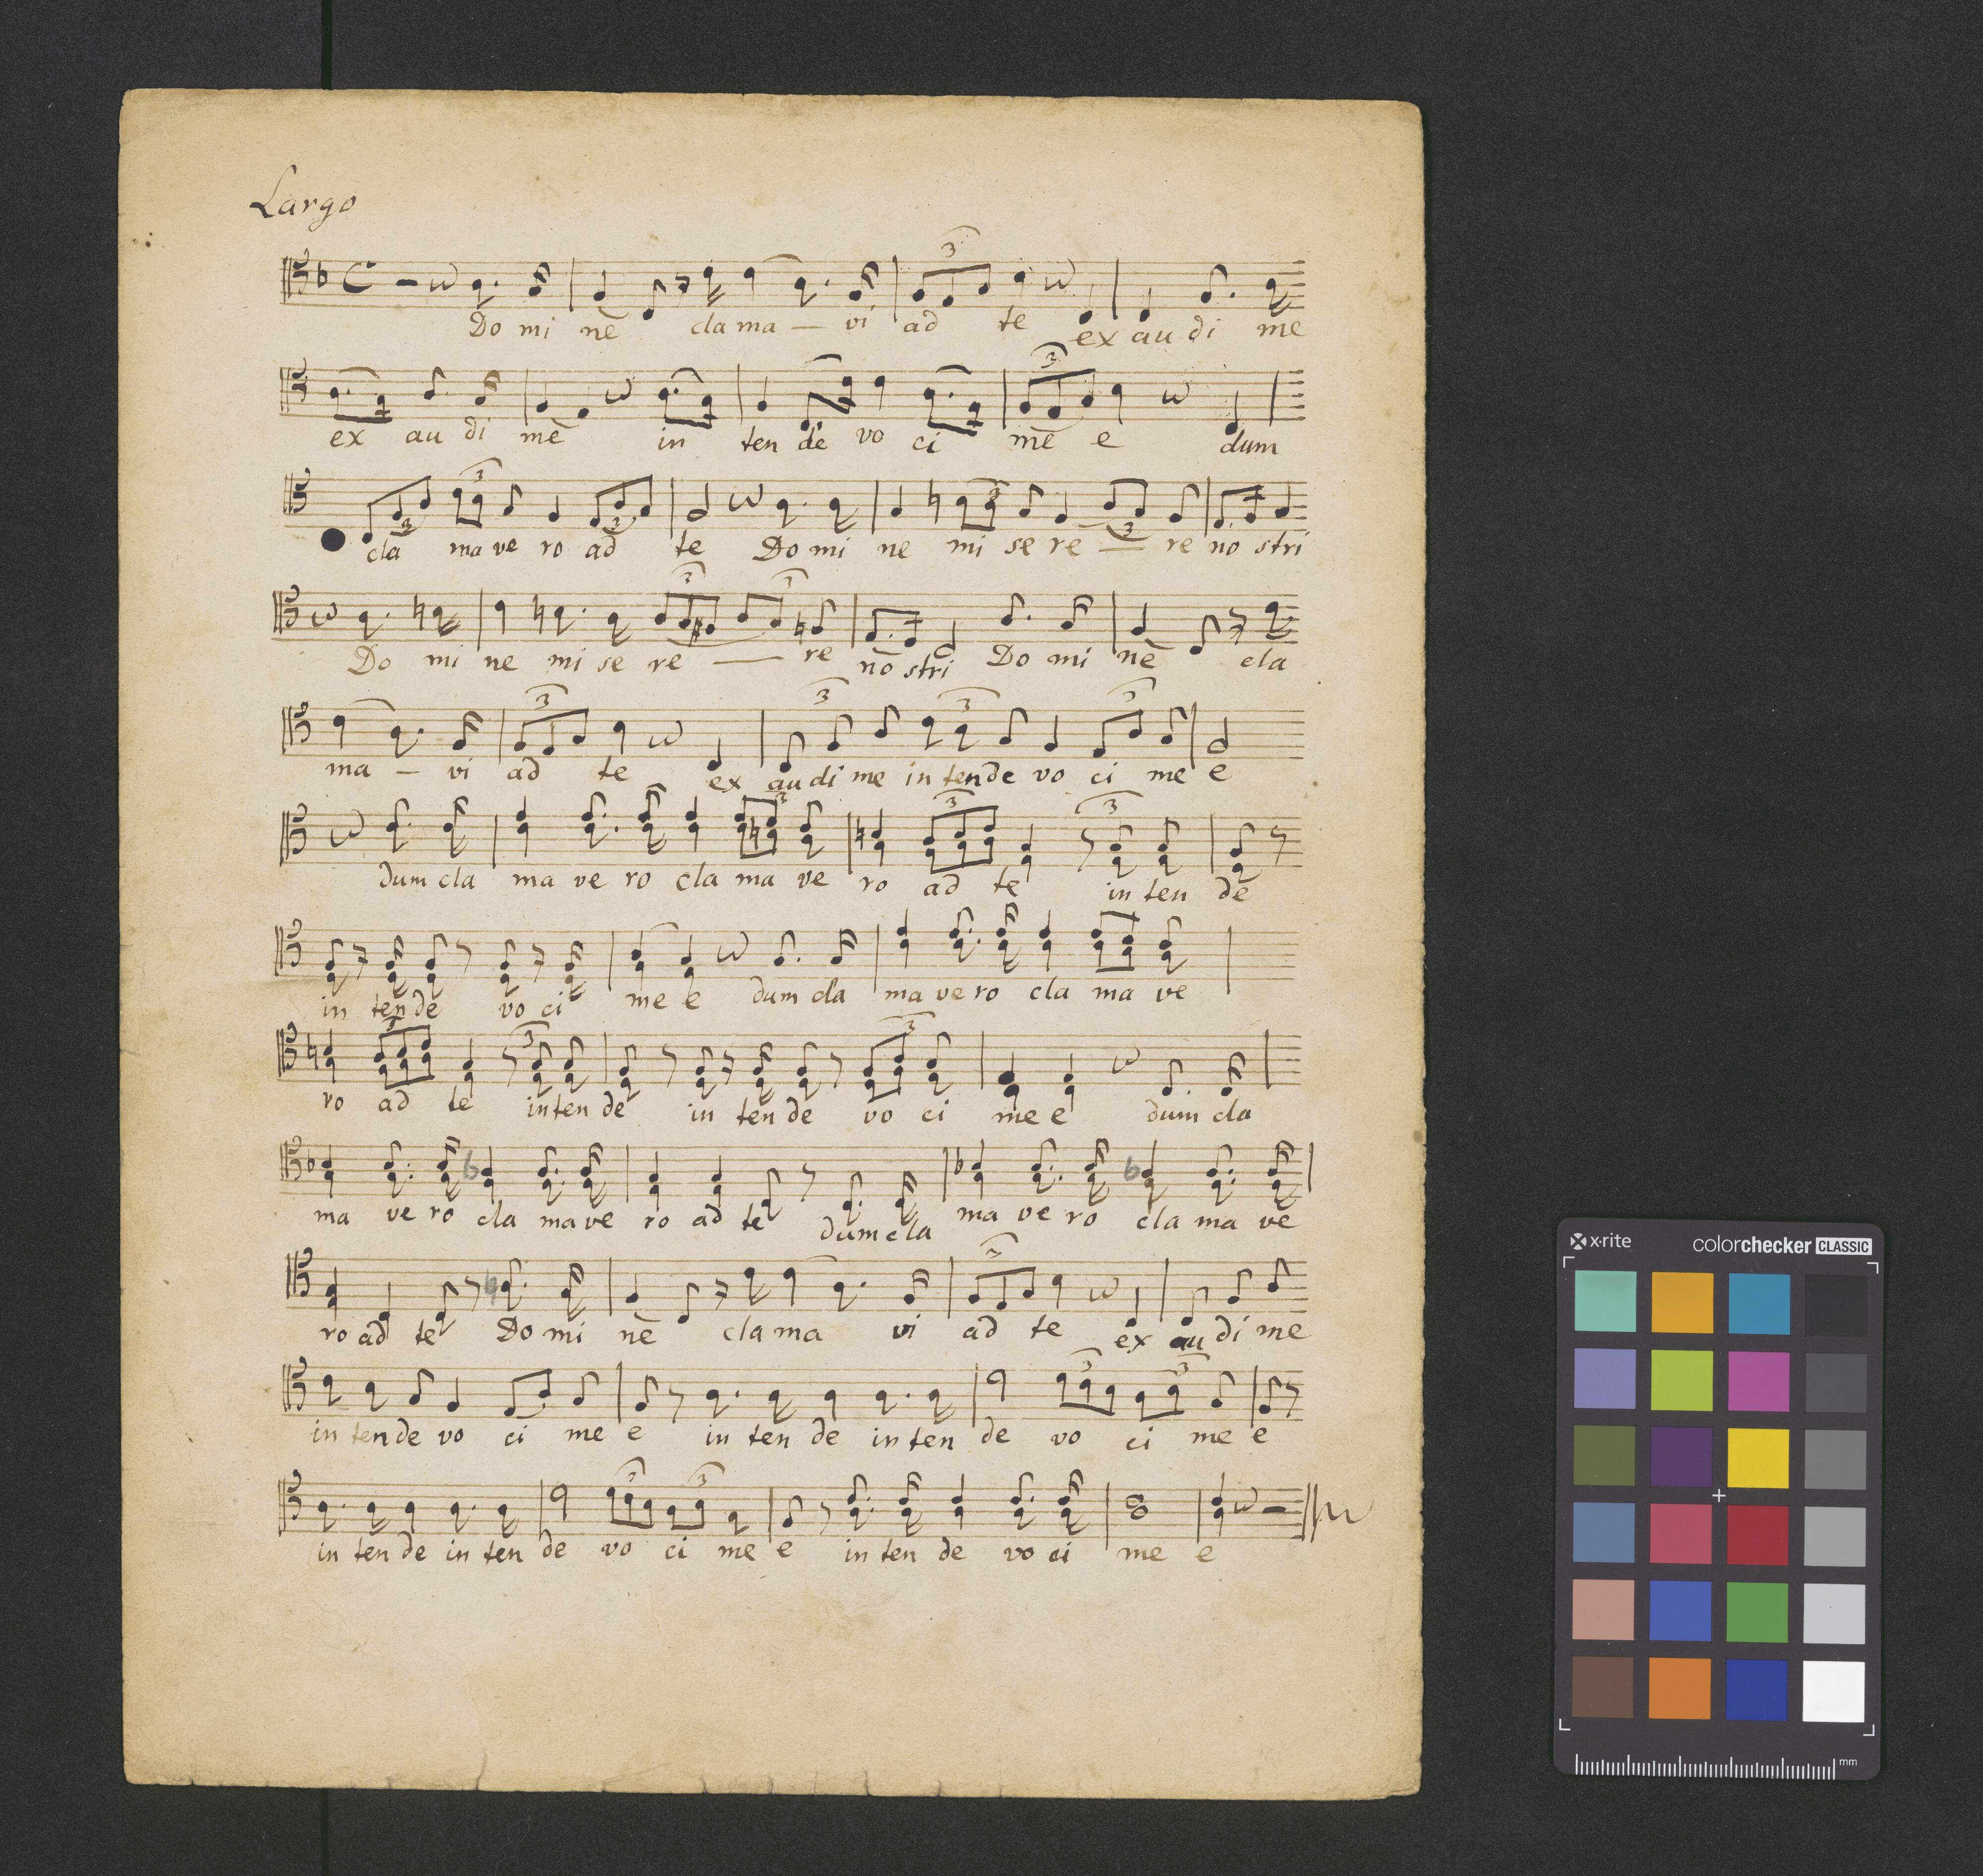 Largo
Do mi nè cla ma — vi ad te ex au di me
ex au di mè in ten de vo ci mè e dum
cla ma ve ro ad te Do mi ne mi se re — re no stri
Do mi ne mi se re — re no stri Do mi nè cla
ma — vi ad te ex au di me in ten de vo ci me e
dum cla ma ve ro cla ma ve ro ad te in ten de
in ten de vo ci me e dum cla ma ve ro cla ma ve
ro ad te in ten de in ten de vo ci me e dum cla
ma ve ro cla ma ve ro ad te dum cla ma ve ro cla ma ve
ro ad te Do mi nè cla ma vi ad te ex au di me
in ten de vo ci me e in ten de in ten de vo ci me e
in ten de in ten de vo ci me e in ten de vo ci me e
x·rite colorchecker CLASSIC
mm